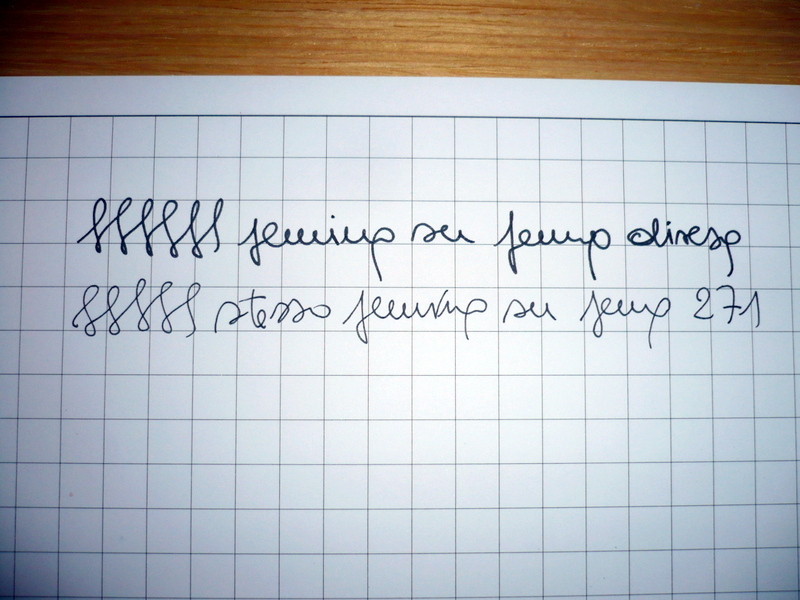 pennino su penna diversa
stesso pennino su penna 271